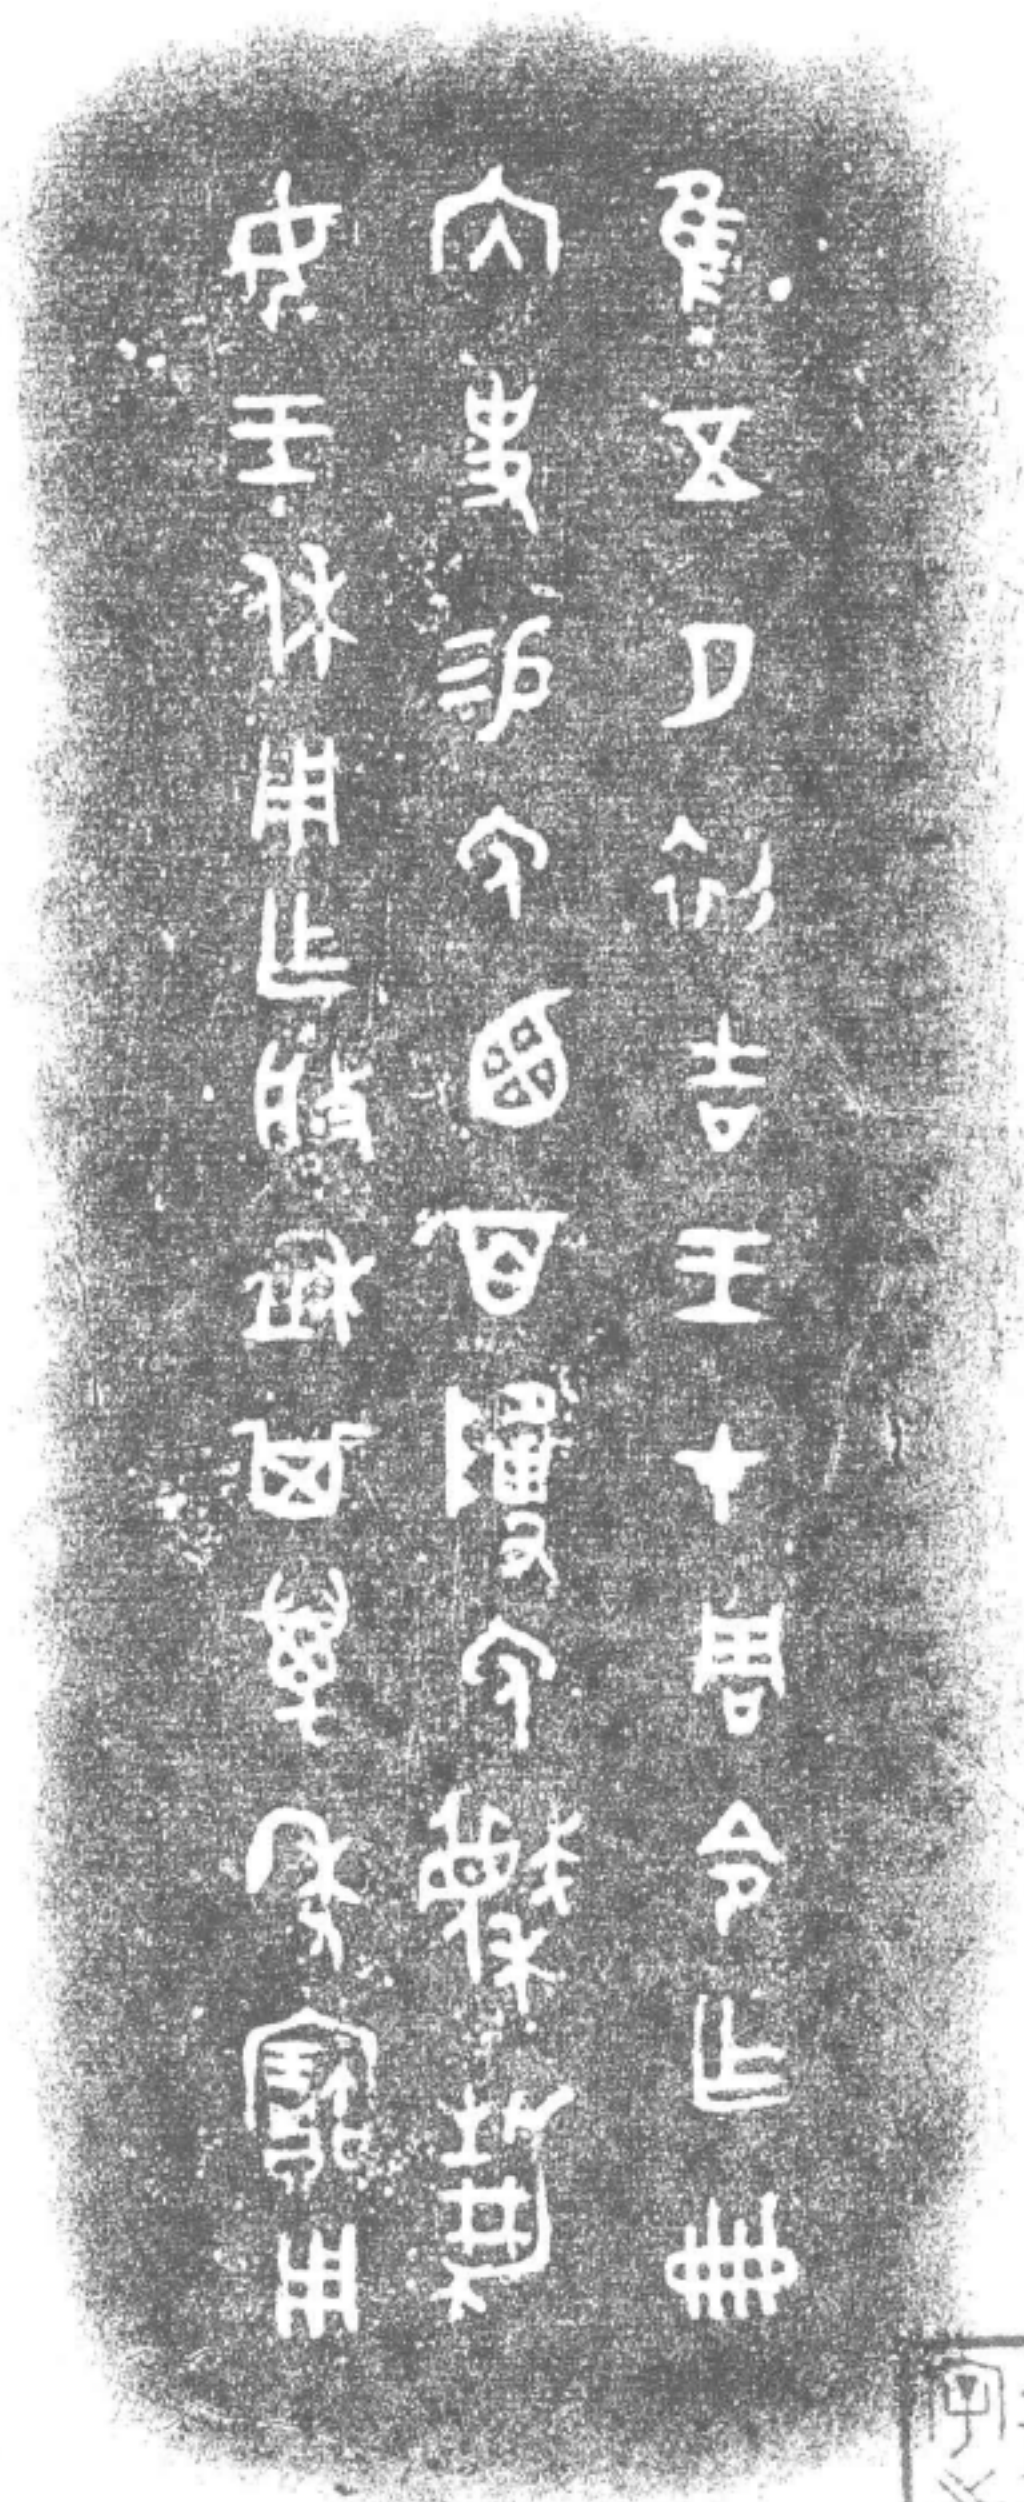 隹五月初吉王才周令乍冊
內史易免鹵百免蔑靜
女王休用乍般盉其萬年寶用